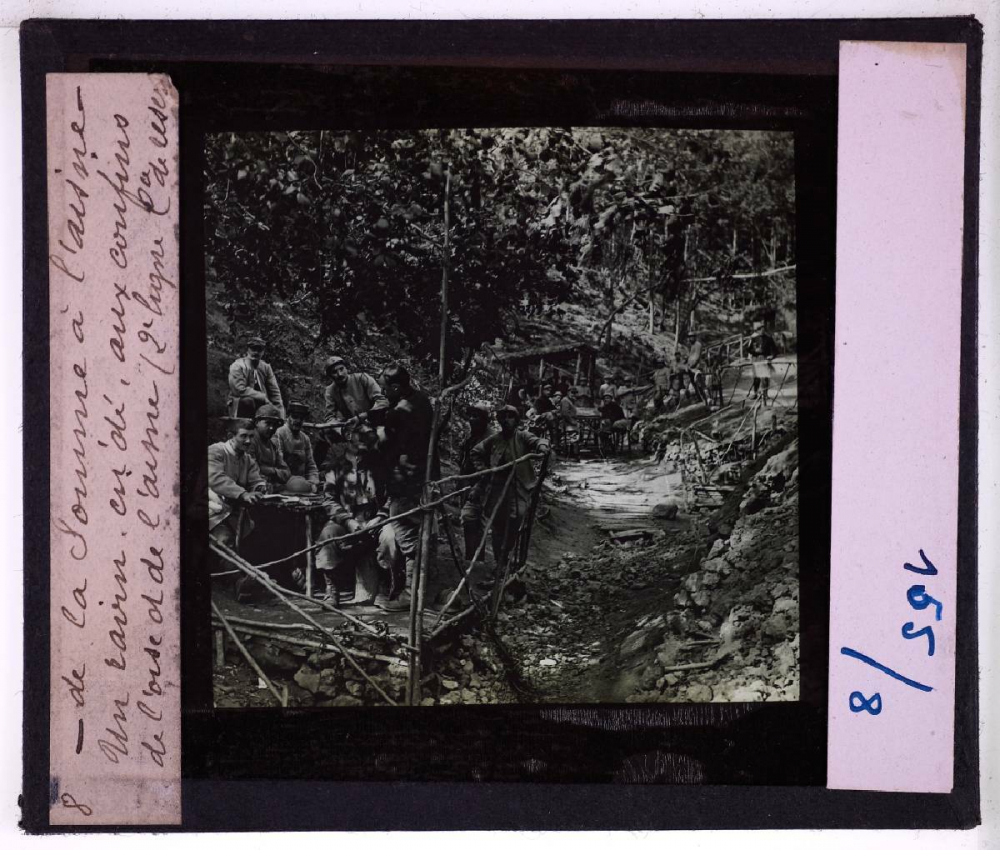 8
— de la Somme à l'aisne —
Un ravin. ci dé, aux confins
de l'oise et de l'aisne (2e ligne (
1655/8